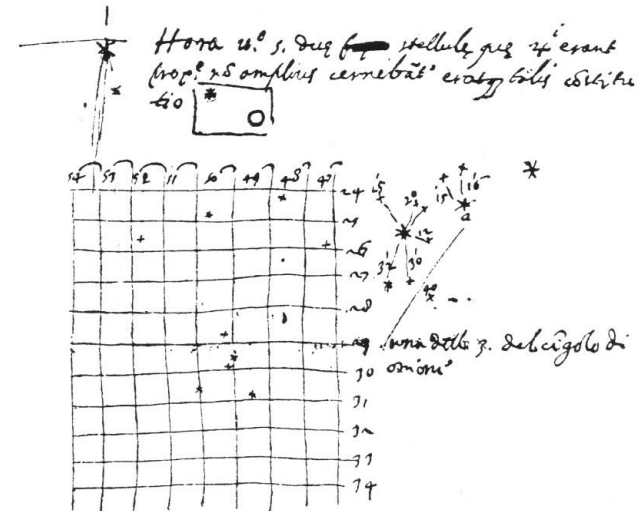 Hora n.° 5. due stellulę quę 4i erant
prop.e nō amplius cernebāt erat talis cōstitu
tio
54 53 52 51 50 49 48 47
24
25
26
27
28
29
30
31
32
33
34
15 20 15 16
a
12
37 30
40
una delle 3. del cīgolo di